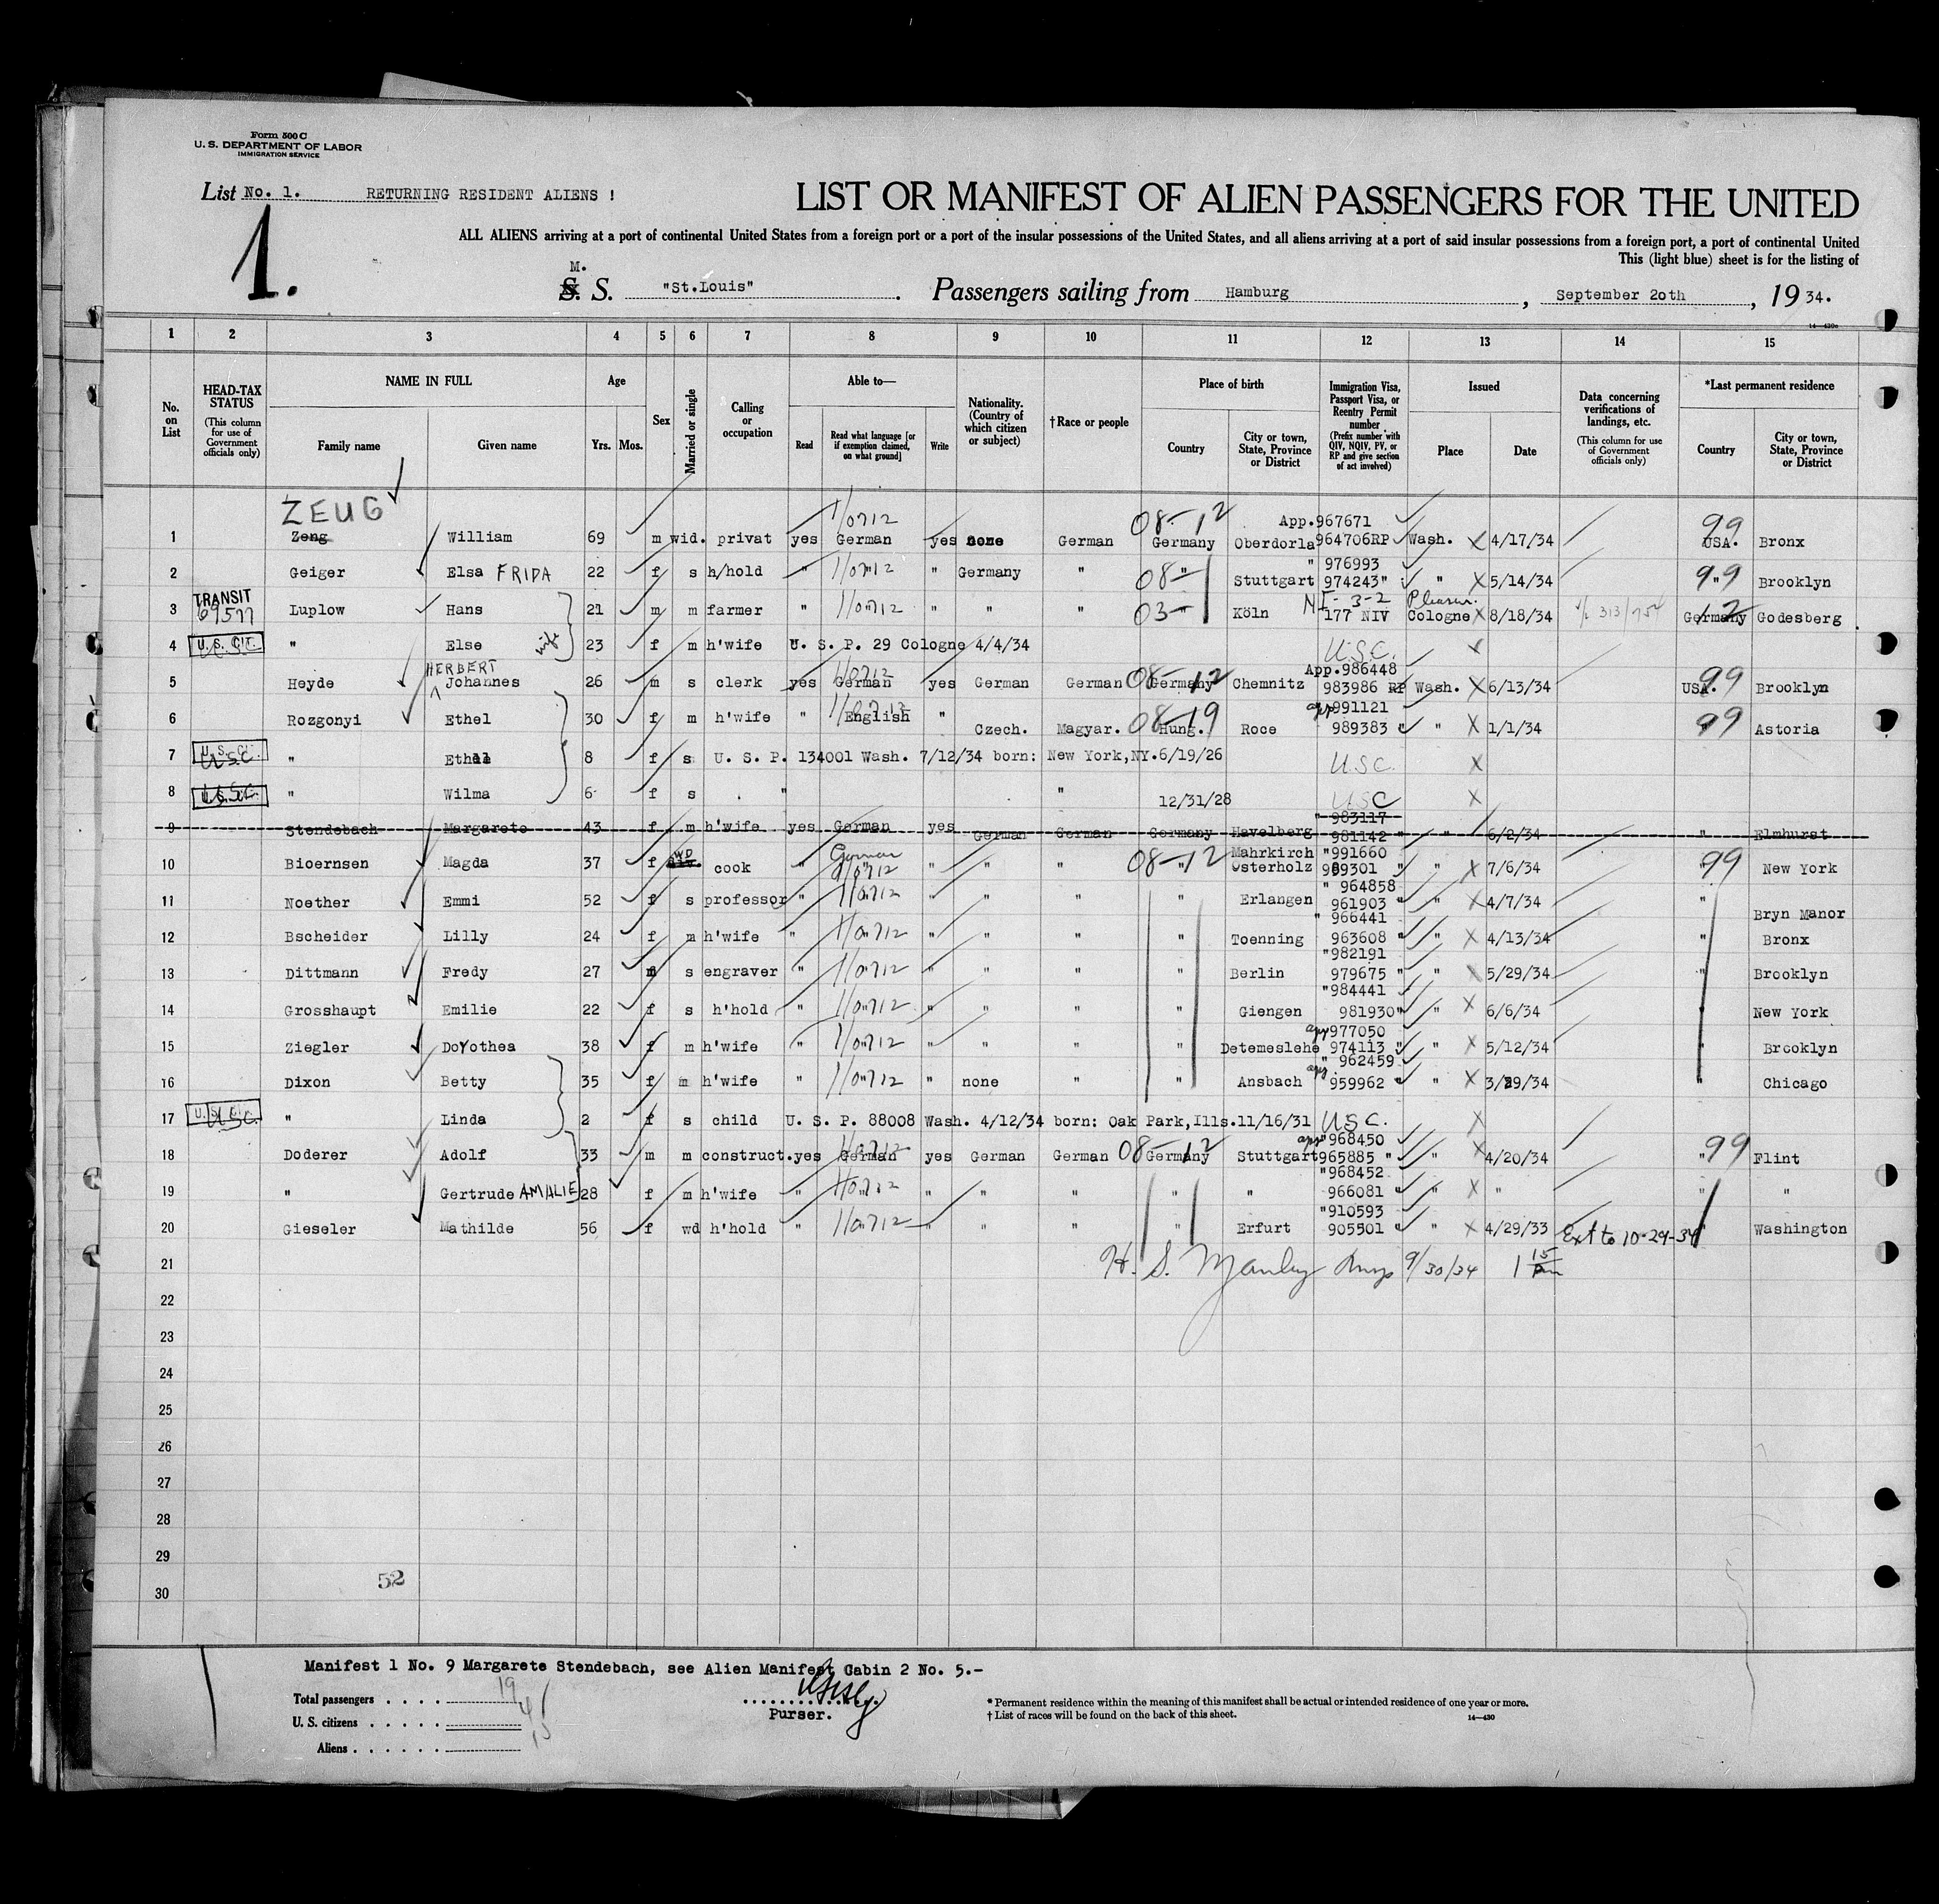 Form 500 C
U. S. DEPARTMENT OF LABOR
IMMIGRATION SERVICE
List No. 1. RETURNING RESIDENT ALIENS !
LIST OR MANIFEST OF ALIEN PASSENGERS FOR THE UNITED
1.
ALL ALIENS arriving at a port of continental United States from a foreign port or a port of the insular possessions of the United States, and all aliens arriving at a port of said insular possessions from a foreign port, a port of continental United
This (light blue) sheet is for the listing of
M.
S. S. "St.Louis" . Passengers sailing from Hamburg , September 2oth , 19 34.
1 2 3 4 5 6 7 8 9 10 11 12 13 14 15
No. on List
HEAD-TAX STATUS (This column for use of Government officials only)
NAME IN FULL Family name Given name
Age Yrs. Mos.
Sex
Married or single
Calling or occupation
Able to— Read Read what language [or if exemption claimed, on what ground] Write
Nationality. (Country of which citizen or subject)
†Race or people
Place of birth Country City or town, State, Province or District
Immigration Visa, Passport Visa, or Reentry Permit number (Prefix number with QIV, NQIV, PV, or RP and give section of act involved)
Issued Place Date
Data concerning verifications of landings, etc. (This column for use of Government officials only)
*Last permanent residence Country City or town, State, Province or District
ZEUG 08-12 App.967671 99
1 Zeng William 69 m wid. privat yes German yes none German Germany Oberdorla 964706RP Wash. 4/17/34 USA. Bronx
" 976993
2 Geiger Elsa FRIDA 22 f s h/hold " " " Germany " 08- " Stuttgart 974243" " 5/14/34 99 " Brooklyn
TRANSIT
69577
3 Luplow Hans 21 m m farmer " " " " " 03- " Köln 177 NIV Cologne 8/18/34 Germany Godesberg
4 U. S. CIT. " Else wife 23 f m h'wife U. S. P. 29 Cologne 4/4/34 U.S.C.
HERBERT App.986448
5 Heyde Johannes 26 m s clerk yes German yes German German 08-12 Germany Chemnitz 983986 RP Wash. 6/13/34 USA. 99 Brooklyn
app 991121
6 Rozgonyi Ethel 30 f m h'wife " English " Czech. Magyar. 08-19 Hung. Roce 989383 " " 1/1/34 99 Astoria
7 U. S. CIT. USC. " Ethel 8 f s U. S. P. 134001 Wash. 7/12/34 born: New York,NY.6/19/26 U.S.C.
8 " Wilma 6 f s . " " 12/31/28 USC
" 983117
9 Stendebach Margarete 43 f m h'wife yes German yes German German Germany Havelberg 981142 " " 6/2/34 " Elmhurst
WD German Mahrkirch "991660
10 Bioernsen Magda 37 f cook " " " " " 08-12 " Osterholz 989301 " " 7/6/34 99 " New York
" 964858
11 Noether Emmi 52 f s professor " " " " " " Erlangen 961903 " " 4/7/34 " Bryn Manor
" 966441
12 Bscheider Lilly 24 f m h'wife " " " " " " Toenning 963608 " " 4/13/34 " Bronx
"982191
13 Dittmann Fredy 27 m s engraver " " " " " " Berlin 979675 " " 5/29/34 " Brooklyn
"984441
14 Grosshaupt Emilie 22 f s h'hold " " " " " " Giengen 981930" " 6/6/34 " New York
app 977050
15 Ziegler Dorothea 38 f m h'wife " " " " " " Detemeslehe 974113 " " 5/12/34 " Brooklyn
app " 962459
16 Dixon Betty 35 f m h'wife " " " none " " Ansbach 959962 " " 3/29/34 " Chicago
17 U. S. CIT. USC. " Linda 2 f s child U. S. P. 88008 Wash. 4/12/34 born: Oak Park,Ills.11/16/31 USC.
app "968450
18 Doderer Adolf 33 m m construct. yes German yes German German 08-12 Germany Stuttgart 965885 " " 4/20/34 " 99 Flint
"968452
19 " Gertrude AMALIE 28 f m h'wife " " " " " " " 966081 " " " " "
"910593
20 Gieseler Mathilde 56 f wd h'hold " " " " " " Erfurt 905501 " " 4/29/33 Ext to 10-29-34 " Washington
21 H. S. Manley Insp 9/30/34 1 15 pm
22
23
24
25
26
27
28
29
52
30
Manifest 1 No. 9 Margarete Stendebach, see Alien Manifest Cabin 2 No. 5.-
Total passengers . . . . 19
U. S. citizens . . . . . 4
Aliens . . . . . . 15
Purser.
* Permanent residence within the meaning of this manifest shall be actual or intended residence of one year or more.
† List of races will be found on the back of this sheet. 14—430